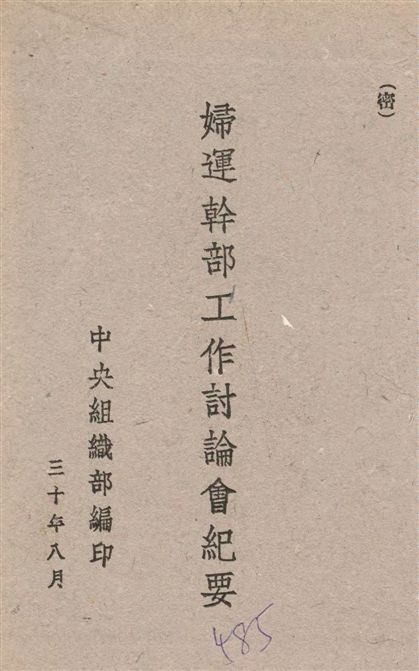 (密)
婦運幹部工作討論會紀要
中央組織部編印
三十年八月
485